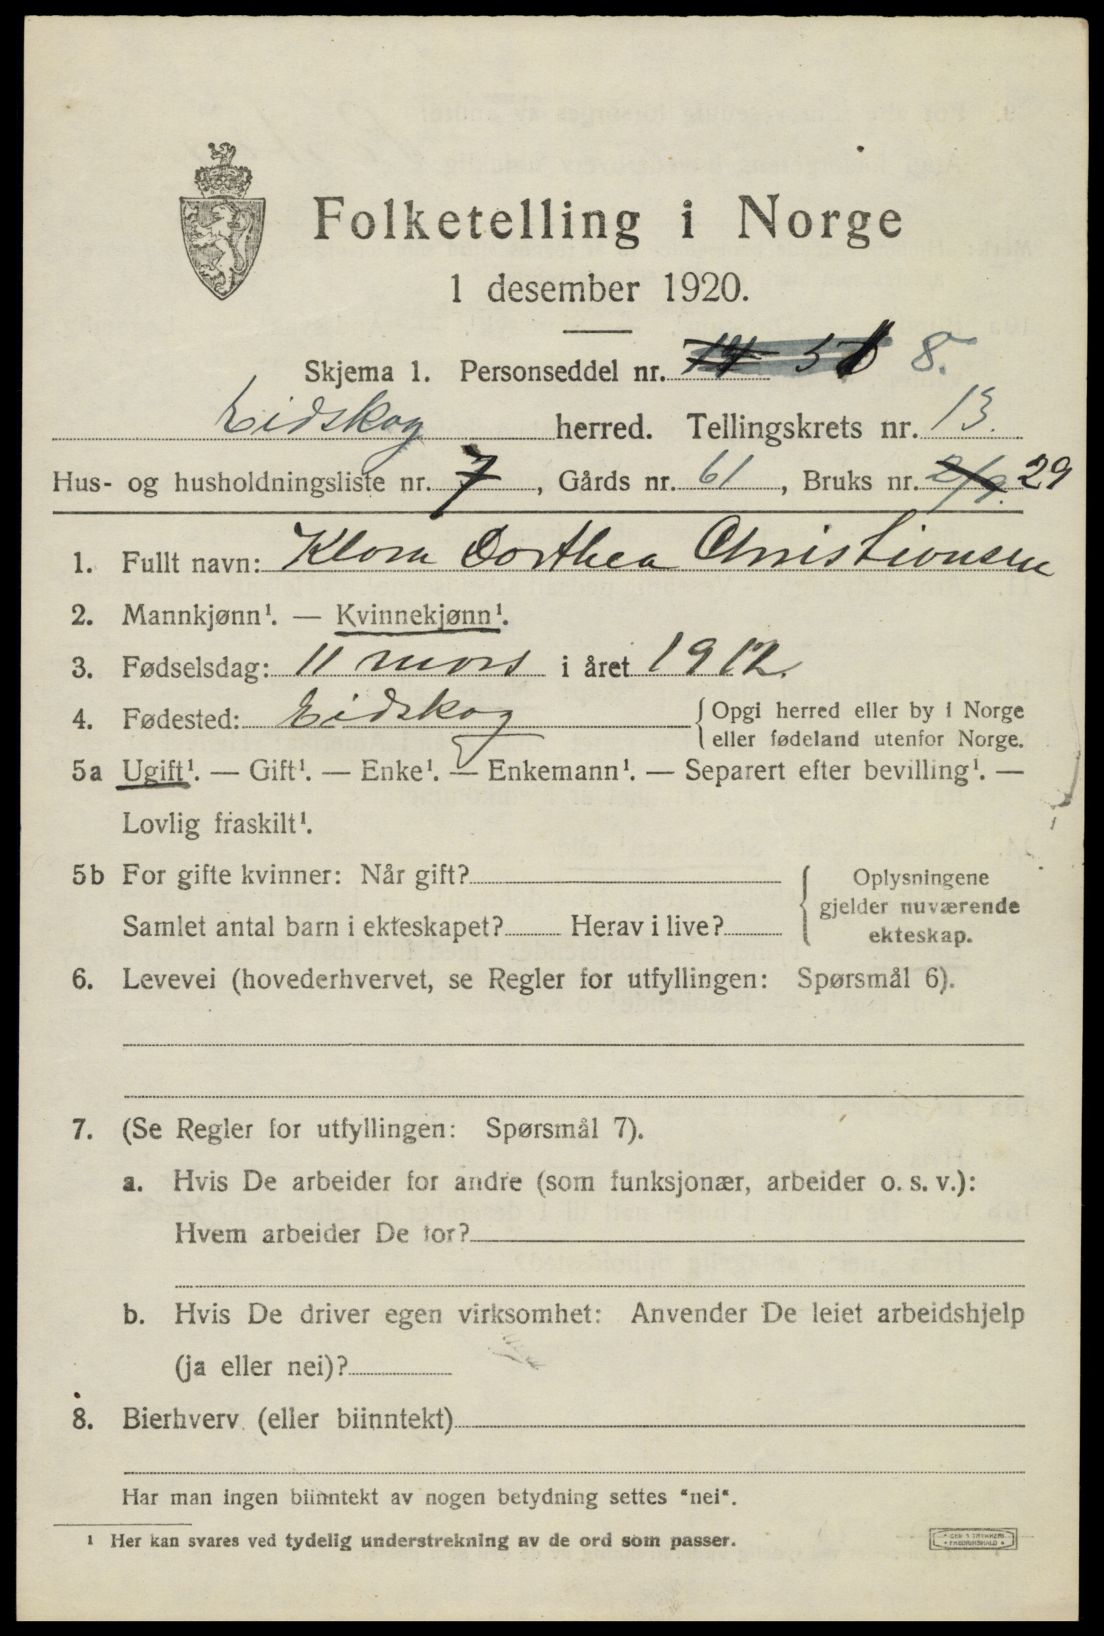 Folketelling i Norge
1 desember 1920.
Skjema 1. Personseddel nr. 8.
Eidskog herred. Tellingskrets nr. 13.
Hus- og husholdningsliste nr. 7, Gårds nr. 61, Bruks nr. 2/9. 29
1. Fullt navn: Klara Dorthea Christiansen
2. Mannkjønn¹. — Kvinnekjønn¹.
3. Fødselsdag: 11 mars i året 1912.
4. Fødested: Eidskog { Opgi herred eller by i Norge
eller fødeland utenfor Norge.
5a Ugift¹. — Gift¹. — Enke¹. — Enkemann¹. — Separert efter bevilling¹. —
Lovlig fraskilt¹.
5b For gifte kvinner: Når gift?
Samlet antal barn i ekteskapet? Herav i live?
{ Oplysningene
gjelder nuværende
ekteskap.
6. Levevei (hovederhvervet, se Regler for utfyllingen: Spørsmål 6).
7. (Se Regler for utfyllingen: Spørsmål 7).
a. Hvis De arbeider for andre (som funksjonær, arbeider o. s. v.):
Hvem arbeider De for?
b. Hvis De driver egen virksomhet: Anvender De leiet arbeidshjelp
(ja eller nei)?
8. Bierhverv (eller biinntekt)
Har man ingen biinntekt av nogen betydning settes "nei".
¹ Her kan svares ved tydelig understrekning av de ord som passer.